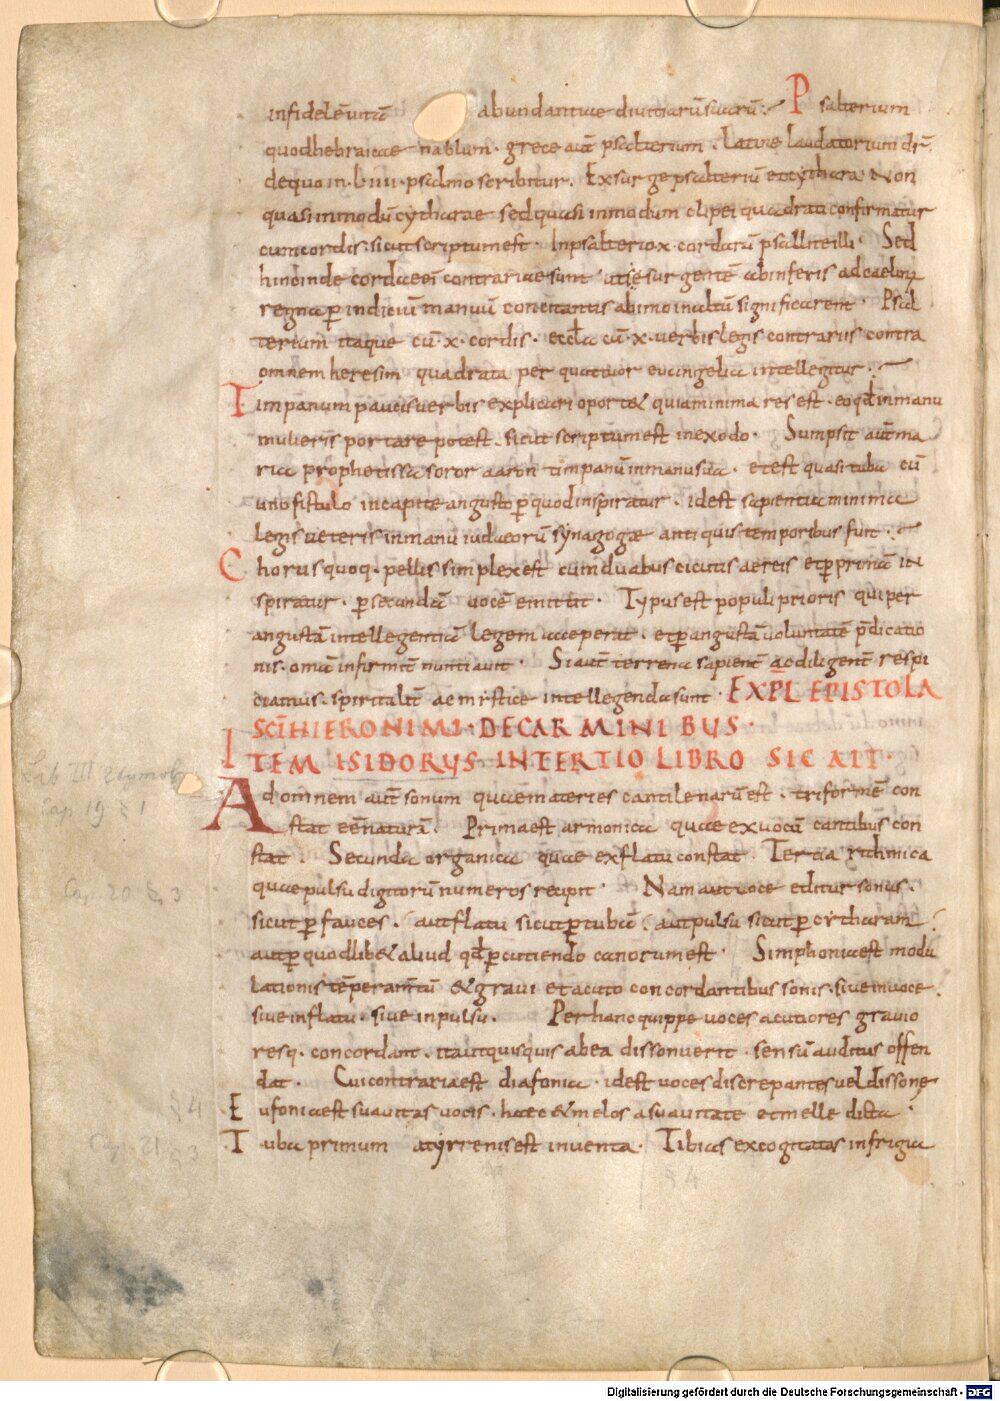 infidelēuitā abundantiae diuitiarū suarū: Psalterium
quod hebraicae nablum · grece aut̄ psalterium · Latine laudatorium dr̄·
de quo in · LVIII · psalmo scribitur · Exsurge psalteriū et cythara Non
quasi in modū cytharae sed quasi in modum clipei quadrati confirmatur
cum cordis · sicut scriptum est · In psalterio x · cordarū psallite illi · Sed
hinc inde cordae ei contrariae sunt ut se surgentē ab inferis ad caelorꝝ
regna ꝑ indiciū manuū concitantis ab imo in altū significarent · Psal
terium itaque cū · x · cordis · eccłia cū · x · uerbis legis contrariis contra
omnem heresim quadrata per quattuor euuangelia intellegitur ·
Timpanum paucis uerbis explicari oportet quia minima res est · eo qđ in manu
mulieris portare potest · sicut scriptum est in exodo · Sumpsit aut̄ ma
ria prophetissa soror aaron timpanū in manu sua · et est quasi tuba cū
uno fistulo in capite angusto ꝑ quod inspiratur · id est sapientia minima
legis ueteris in manu iudaeorū synagogae antiquis temporibus fuit ·
Chorus quoq· pellis simplex est cum duabus cicutis aereis et ꝑ primā in
spiratur · ꝑ secundā uocē emittit · Typus est populi prioris qui per
angustā intellegentiā legem acceperat · et ꝑ angustā uoluntatē p̄dicatio
nis · omīa infirmit̄ nuntiauit · Si aut̄ terrena sapient̄ ac diligent̄ respi
ciamus · spiritalit̄ ac mystice intellegenda sunt · EXPL EPISTOLA
SCI HIERONIMI · DE CARMINIBUS ·
ITEM ISIDORUS IN TERTIO LIBRO SIC AIT ·
Ad omnem aut̄ sonum quae materies cantilenarū est · triformē con
stat eē naturā · Prima est armonica quae ex uocū cantibus con
stat · Secunda organica quae ex flatu constat · Tercia rithmica
quae pulsu digitorū numeros recipit · Nam aut uoce editur sonus ·
sicut ꝑ fauces · aut flatu sicut ꝑ tubā · aut pulsu sicut ꝑ cytharam
aut ꝑ quodlibet aliud qđ ꝑcutiendo canorum est · Simphonia est modu
lationis tēperamentū & graui et acuto concordantibus sonis · siue in uoce ·
siue in flatu · siue in pulsu · Per hanc quippe uoces acutiores grauio
resq· concordant · ita ut quisquis ab ea dissonuerit · sensū auditus offen
dat · Cui contraria est diafonia · id est uoces discrepantes uel dissone
Eufonia est suauitas uocis · haec & melos a suauitate et melle dicta ·
Tuba primum a tyrrenis est inuenta · Tibias excogitatas in frigia
Lib III
Cap 19 § 1
Cap. 20 § 3
§ 4
Cap. 21 3
§ 4
Digitalisierung gefördert durch die Deutsche Forschungsgemeinschaft - DFG